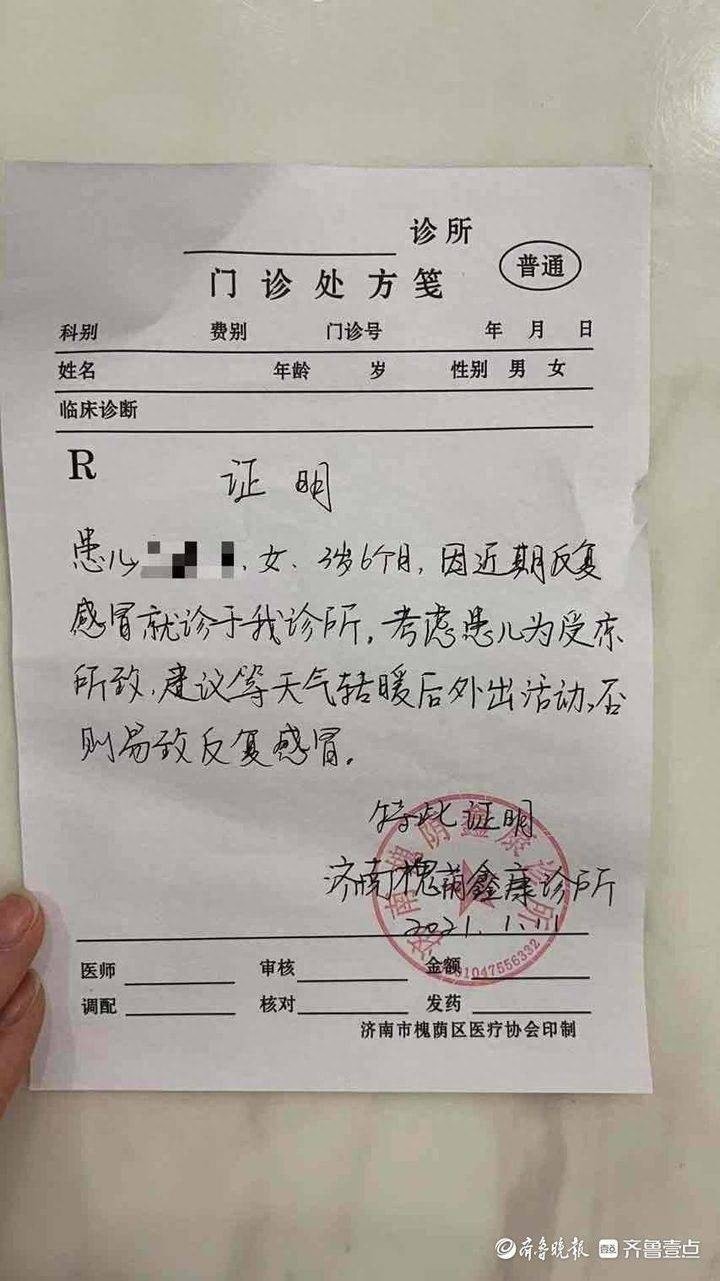 诊所
门诊处方笺 普通
科别 费别 门诊号 年 月 日
姓名 年龄 岁 性别 男 女
临床诊断
R 证明
患儿 、女、3岁6个月,因近期反复
感冒就诊于我诊所,考虑患儿为受冻
所致,建议等天气转暖后外出活动,否
则易致反复感冒。
特此证明
济南槐荫鑫康诊所
2021.1.11
济南槐荫鑫康诊所
医师 审核 金额
调配 核对 发药
济南市槐荫区医疗协会印制
齐鲁晚报 齐鲁壹点